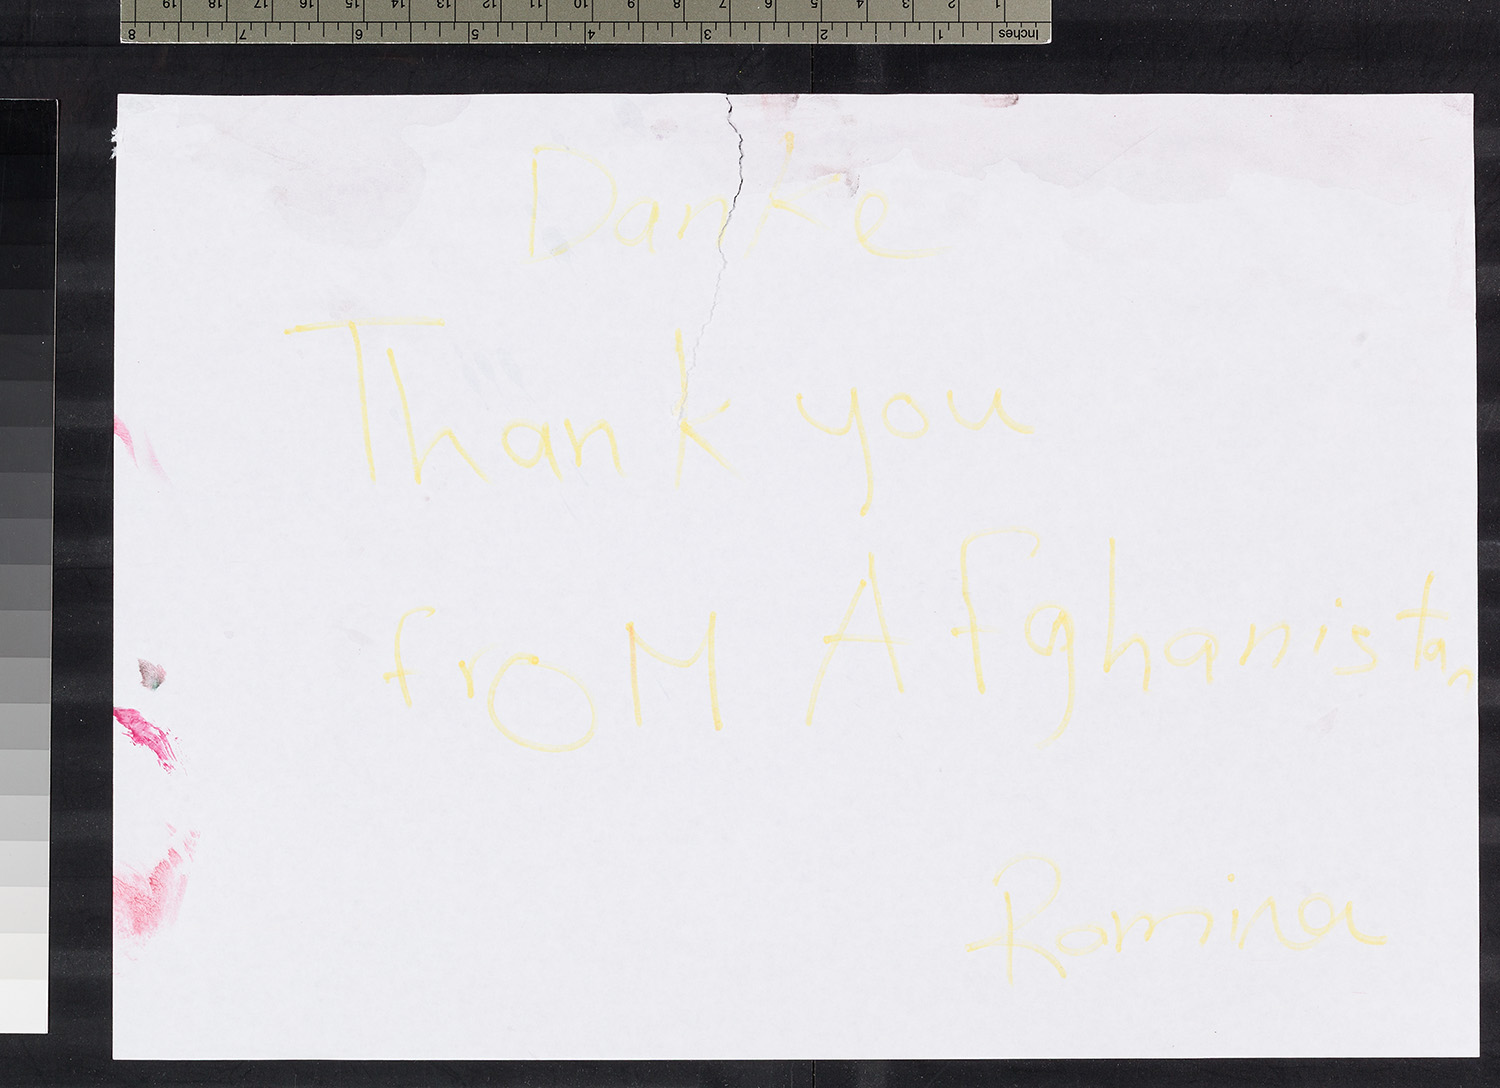 19 18 17 16 15 14 13 12 11 10 9 8 7 6 5 4 3 2 1
8 7 6 5 4 3 2 1 Inches
Danke
Thank you
froM Afghanistan
Romina